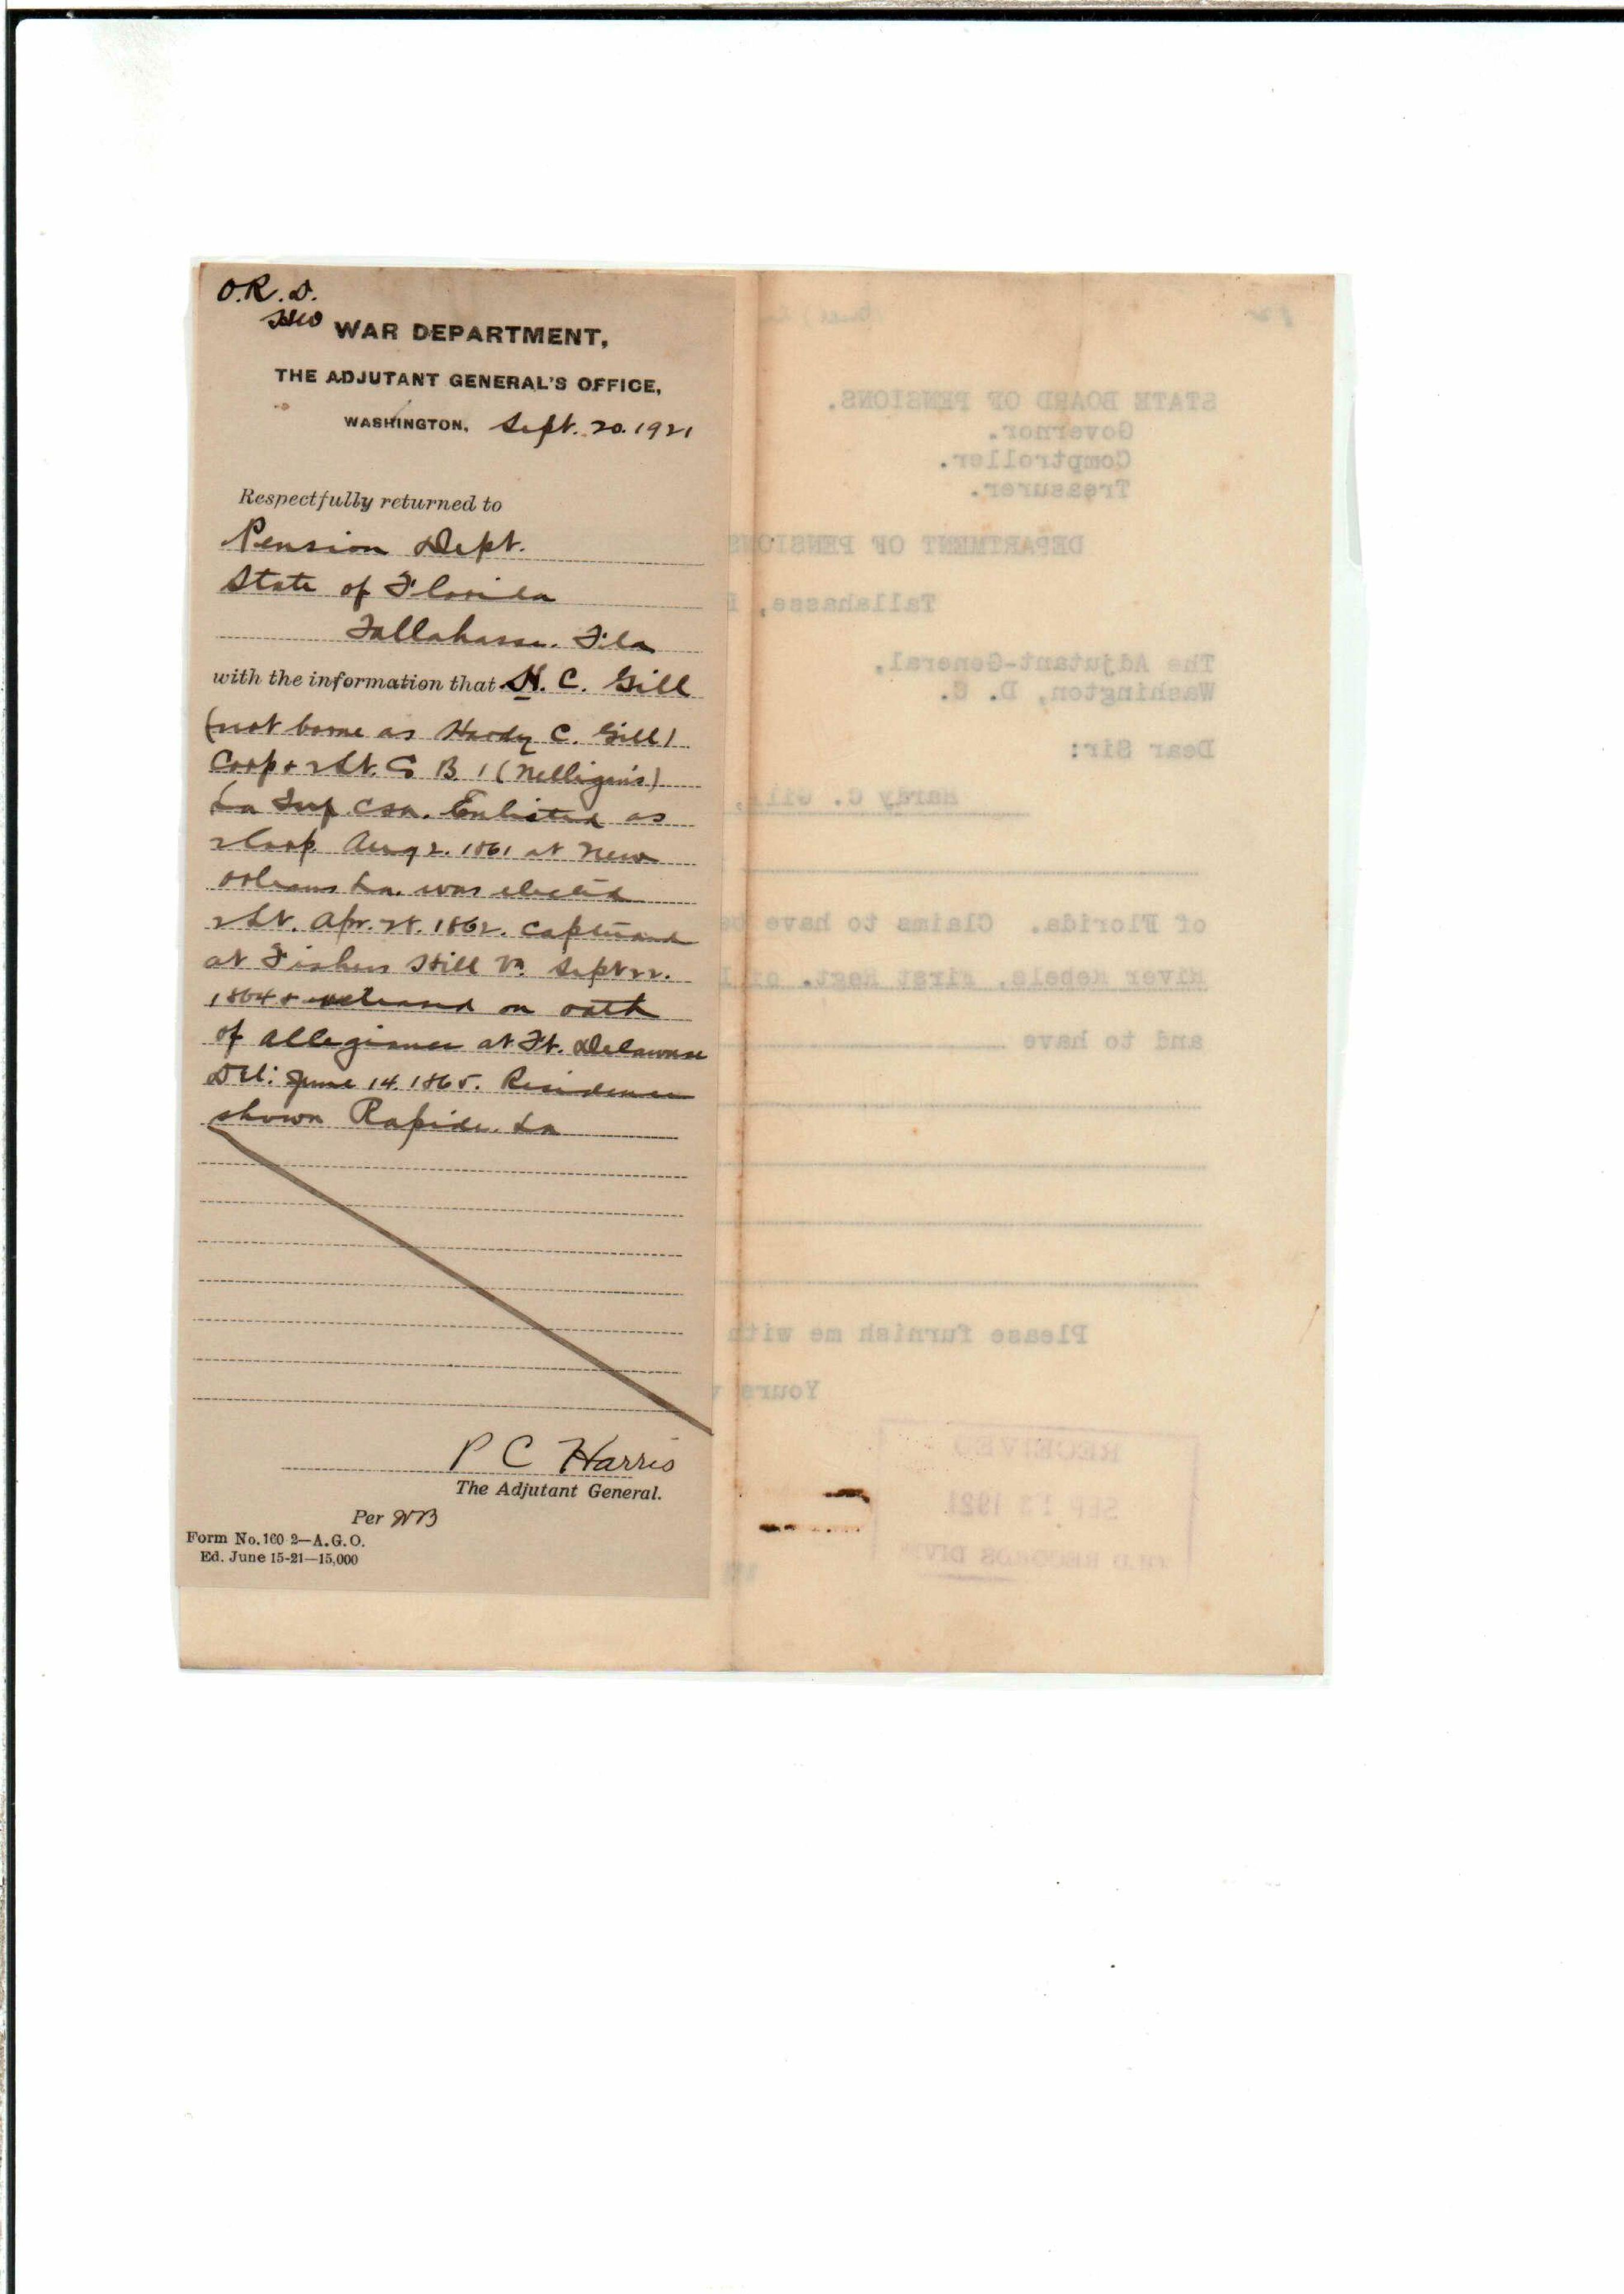 O.R.D.
WAR DEPARTMENT,
THE ADJUTANT GENERAL'S OFFICE,
WASHINGTON, Sept. 20. 1921
Respectfully returned to
Pension Dept.
State of Florida
Tallahassee. Fla
with the information that H. C. Gill
(not borne as Hardy C. Gill)
Corp & 2 Lt. B. 1 (Nelligan's)
La Inf. CSA. Enlisted as
2 Corp. Aug 2. 1861 at New
Orleans La. was elected
2 Lt. Apr. 28. 1862. Captured
at Fishers Hill Va Sept 22.
1864 & released on oath
of allegiance at Ft. Delaware
Del. June 14. 1865. Residence
shown Rapide. La
P C Harris
The Adjutant General.
Per WB
Form No. 160 2—A.G.O.
Ed. June 15-21—15,000
STATE BOARD OF PENSIONS.
Governor.
Comptroller.
Treasurer.
DEPARTMENT OF PENSIONS
Tallahasse,
The Adjutant-General,
Washington, D. C.
Dear Sir:
Hardy C. Gill,
of Florida. Claims to have be
River Rebels, First Regt. of
and to have
Please furnish me with
Yours
RECEIVED
SEP 13 1921
OLD RECORDS DIV